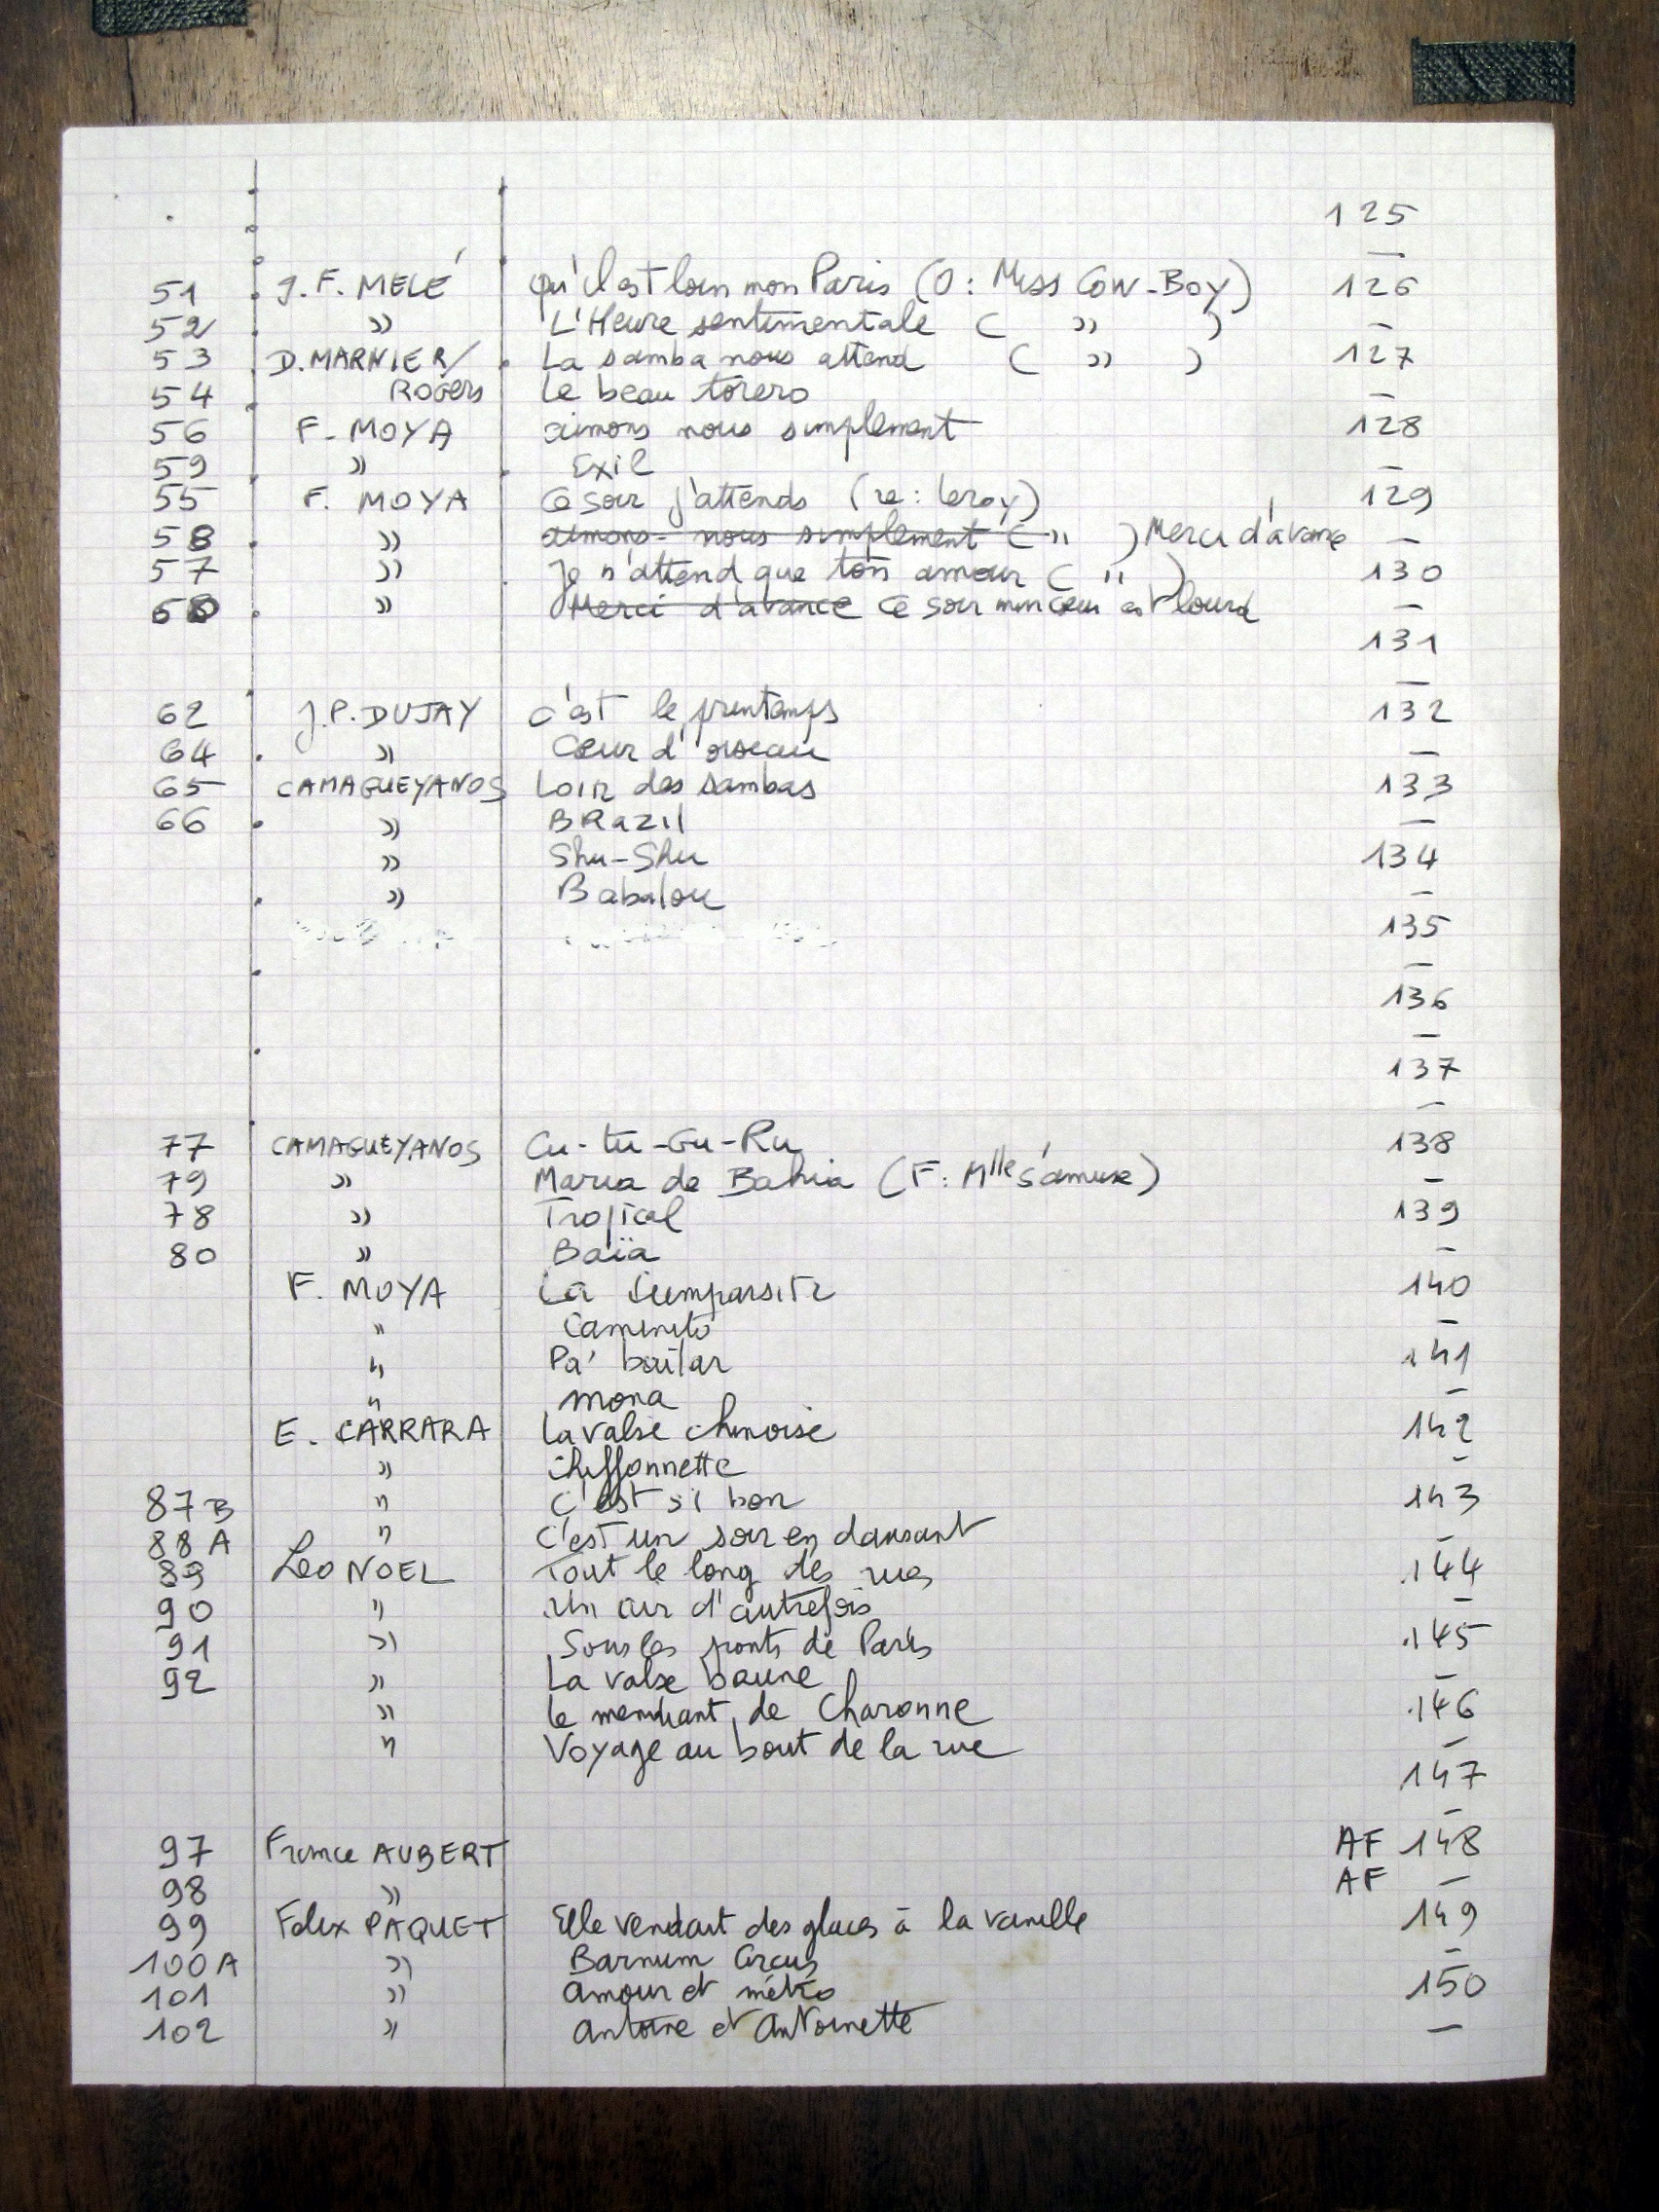 125
—
51 J.F. MELÉ Qu'il est loin mon Paris (O: Miss Cow-Boy) 126
52 » L'Heure sentimentale ( » ) —
53 D. MARNIER/ La samba nous attend ( » ) 127
54 ROGERS Le beau torero —
56 F. MOYA aimons nous simplement 128
59 » Exil —
55 F. MOYA Ce soir j'attends (re: Leroy) 129
58 » aimons-nous simplement ( " ) Merci d'avance —
57 » Je n'attend que ton amour ( " ) 130
60 » Merci d'avance Ce soir mon cœur est lourd —
131
—
62 J.P. DUJAY C'est le printemps 132
64 » Cœur d'oiseau —
65 CAMAGUEYANOS Loin des sambas 133
66 » BRAZIL —
» Shu-Shu 134
» Babalou —
135
—
136
—
137
—
77 CAMAGUEYANOS Cu-tu-Gu-Ru 138
79 » Maria de Bahia (F: Mlle s'amuse) —
78 » Tropical 139
80 » Baïa —
F. MOYA La Cumparsita 140
" Caminito —
" Pa' bailar 141
" Mona —
E. CARRARA La valse chinoise 142
» Chiffonnette —
87B " C'est si bon 143
88A " C'est un soir en dansant —
89 Leo NOEL Tout le long des rues 144
90 " Un air d'autrefois —
91 » Sous les ponts de Paris 145
92 » La valse brune —
» Le mendiant de Charonne 146
" Voyage au bout de la rue —
147
—
97 France AUBERT AF 148
98 » AF —
99 Félix PAQUET Elle vendait des glaces à la vanille 149
100A » Barnum Circus —
101 » Amour et métro 150
102 » Antoine et Antoinette —